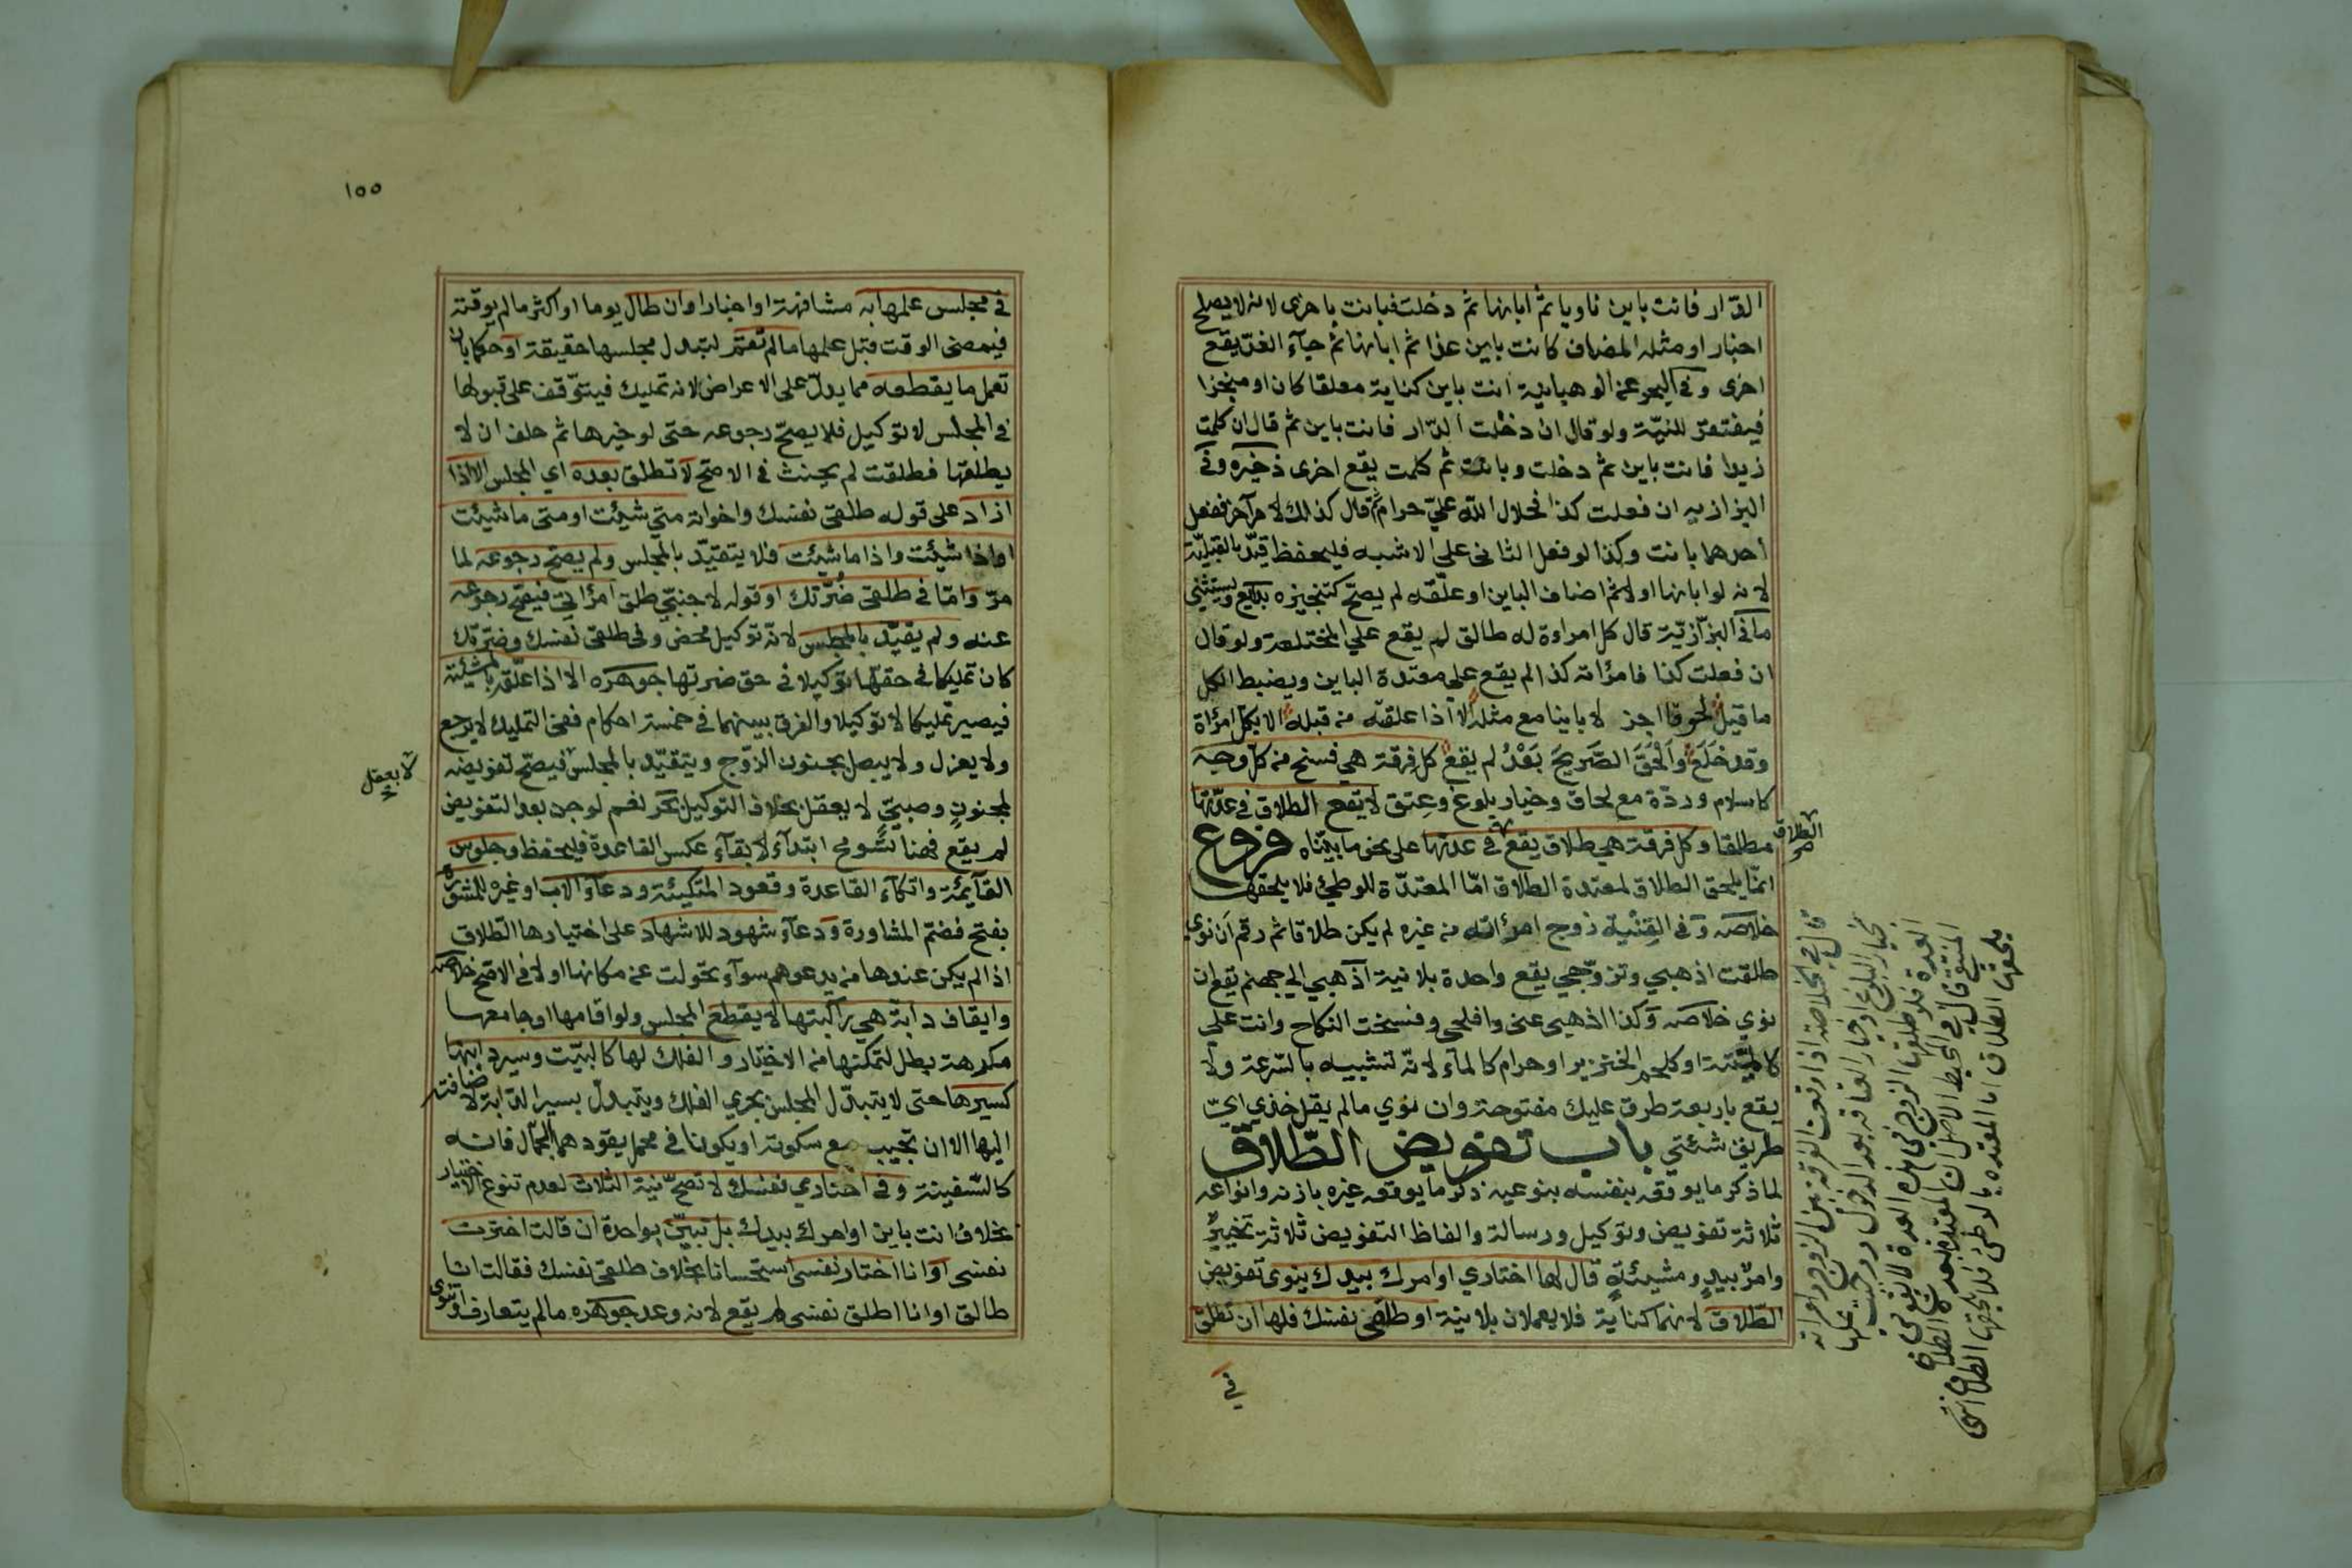 الدار فانت باين ناويا ثم ابانها ثم دخلت فبانت باخرى لانه لا يصلح
اخبارا ومثله المضاف كانت باين غدا ثم ابانها ثم جآء الغد يقع
اخرى وفي البحر عن الوهبانية انت باين كناية معلقا كان او منجزا
فيفتقر للنية ولو قال ان دخلت الدار فانت باين ثم قال ان كلمت
زيدا فانت باين ثم دخلت وبانت ثم كلمت يقع اخرى ذخيره وفي
البزازيه ان فعلت كذا فحلال الله علي حرام ثم قال كذلك لامر آخر ففعل
احدهما بانت وكذا لو فعل الثاني على الاشبه فليحفظ قيد بالقبلية
لانه لو ابانها اولا ثم اضاف الباين او علقه لم يصح كتنجيزه بدايع ويستثنى
ما في البزازية قال كل امراءة له طالق لم يقع علي المختلعة ولو قال
ان فعلت كذا فامرأته كذا لم يقع على معتدة الباين ويضبط الكل
ما قيل لحوقا اجز لا باينا مع مثله الا اذا علقته من قبله الا بكل امرأة
وقد خلع والحق الصريح بعد لم يقع كل فرقة هي فسخ من كل وجه
كاسلام وردة مع لحاق وخيار بلوغ وعتق لا يقع الطلاق في عدتها
مطلقا وكل فرقة هي طلاق يقع في عدتها على نحو ما بيناه فروع
الطلاق صح
انما يلحق الطلاق لمعتدة الطلاق اما المعتدة للوطئ فلا يلحقها
خلاصه وفي القنيه زوج امرأته من غيره لم يكن طلاقا ثم رقم ان نوى
طلقت اذهبي وتزوجي يقع واحدة بلا نية اذهبي الي جهنم يقع ان
نوي خلاصه وكذا اذهبي عني وافلحي وفسخت النكاح وانت علي
كالميتة او كلحم الخنزير او حرام كالمآء لانه تشبيه بالسرعة ولا
يقع باربعة طرق عليك مفتوحة وان نوي ما لم يقل خذي اي
طريق شئتي باب تفويض الطلاق
لما ذكر ما يوقعه بنفسه بنوعيه ذكر ما يوقعه غيره باذنه وانواعه
ثلاثة تفويض وتوكيل ورسالة والفاظ التفويض ثلاثة تخيير
وامر بيد ومشيئة قال لها اختاري او امرك بيدك ينوي تفويض
الطلاق لانهما كناية فلا يعملان بلا نية او طلقي نفسك فلها ان تطلق
في
قال في الخلاصة اذا وقعت الفرقة بين الزوج وامراته
بخيار البلوغ او خيار العتاقه بعد الدخول ووجبت عليها
العدة فلو طلقها الزوج في هذه العدة لا يقع
المنتقى قال في المحيط الاصل ان المعتده بعدة الطلاق
يلحقها الطلاق اما المعتده بالوطئ فلا يلحقها الطلاق انتهى
١٥٥
في مجلس علمها به مشافهة او اخبارا وان طال يوما او اكثر ما لم يوقته
فيمضي الوقت قبل علمها ما لم تقم لتبدل مجلسها حقيقة او حكما بان
تعمل ما يقطعه مما يدل على الاعراض لانه تمليك فيتوقف على قبولها
في المجلس لا توكيل فلا يصح رجوعه حتى لو خيرها ثم حلف ان لا
يطلقها فطلقت لم يحنث في الاصح لا تطلق بعده اي المجلس الا اذا
ازاد على قوله طلقي نفسك واخواته متي شيئت او متى ما شيئت
او اذا شيئت واذا ما شيئت فلا يتقيد بالمجلس ولم يصح رجوعه لما
مر واما في طلقي ضرتك او قوله لاجنبي طلق امرأتي فيصح رجوعه
عنه ولم يقيد بالمجلس لانه توكيل محض وفي طلقي نفسك وضرتك
كان تمليكا في حقها توكيلا في حق ضرتها جوهره الا اذا علقه بالمشيئة
فيصير تمليكا لا توكيلا والفرق بينهما في خمسة احكام ففي التمليك لا يرجع
ولا يعزل ولا يبطل بجنون الزوج ويتقيد بالمجلس فيصح تفويضه
لا بعقل
لمجنون وصبي لا يعقل بخلاف التوكيل بحر نعم لو جن بعد التفويض
لم يقع فهنا تسومح ابتدآء لا بقآء عكس القاعدة فليحفظ وجلوس
القآيمة واتكآء القاعدة وقعود المتكيئة ودعآء الاب او غيره للمشورة
بفتح فضم المشاورة ودعآء شهود للاشهاد على اختيارها الطلاق
اذا لم يكن عندها من يدعوهم سوآء تحولت عن مكانها او لا في الاصح خلاصه
وايقاف دابة هي راكبتها لا يقطع المجلس ولو اقامها او جامعها
مكرهة بطل لتمكنها من الاختيار والفلك لها كالبيت وسير دابتها
كسيرها حتى لا يتبدل المجلس بجري الفلك ويتبدل بسير الدابة لاضافته
اليها الا ان تجيب مع سكوته او يكونا في محمل يقودهما الجمال فانه
كالسفينة وفي اختاري نفسك لا تصح نية الثلاث لعدم تنوع الاختيار
بخلاف انت باين او امرك بيدك بل تبين بواحدة ان قالت اخترت
نفسي او انا اختار نفسي استحسانا بخلاف طلقي نفسك فقالت انا
طالق او انا اطلق نفسي لم يقع لانه وعد جوهره ما لم يتعارف او تنوي